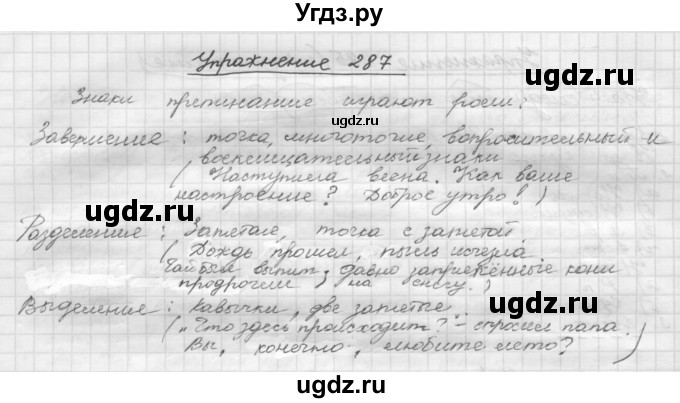 Угдз.ру
Упражнение 287
Знаки препинание играют роли:
Завершение: точка, многоточие, вопросительный и
восклицательный знаки
(Наступила весна. Как ваше
настроение? Доброе утро!)
Разделение: Запятые, точка с запятой.
(Дождь прошел, пыль исчезла.
Чай был выпит; давно запряжённые кони
продрогли на снегу.)
Выделение: Кавычки, две запятые.
(„Что здесь происходит? - спросил папа.
Вы, конечно, любите лето?)
ugdz.ru
ugdz.ru
ugdz.ru
ugdz.ru
ugdz.ru
ugdz.ru
ugdz.ru